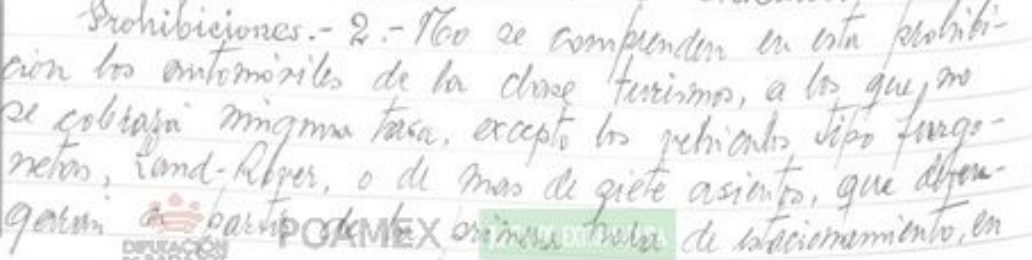 Prohibiciones.- 2.- No se comprenden en esta prohibi-
ción los automóviles de la clase turismos, a los que no
se cobrará ninguna tasa, excepto los vehículos tipo furgo-
netas, Land-Rover, o de mas de siete asientos, que deven-
garán a partir de la primera hora de estacionamiento, en
DIPUTACIÓN
POAMEX